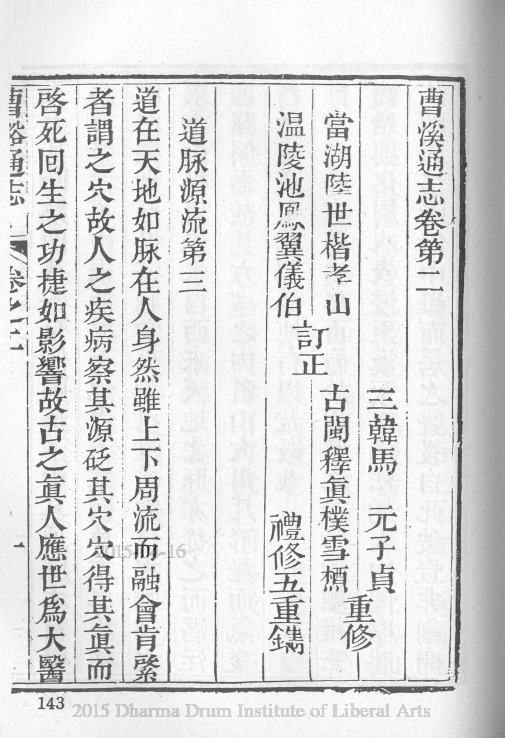 曹溪通志卷第二
三韓馬　元子貞
當湖陸世楷孝山
古閩釋眞樸雪槱
重修
溫陵池鳳翼儀伯
訂正
禮修五重鐫
道脉源流第三
道在天地如脉在人身然雖上下周流而融會肯綮
者謂之穴故人之疾病察其源砭其穴穴得其眞而
啓死回生之功捷如影響故古之眞人應世爲大醫
曹谿通志
卷之二
一
143
2015 Dharma Drum Institute of Liberal Arts